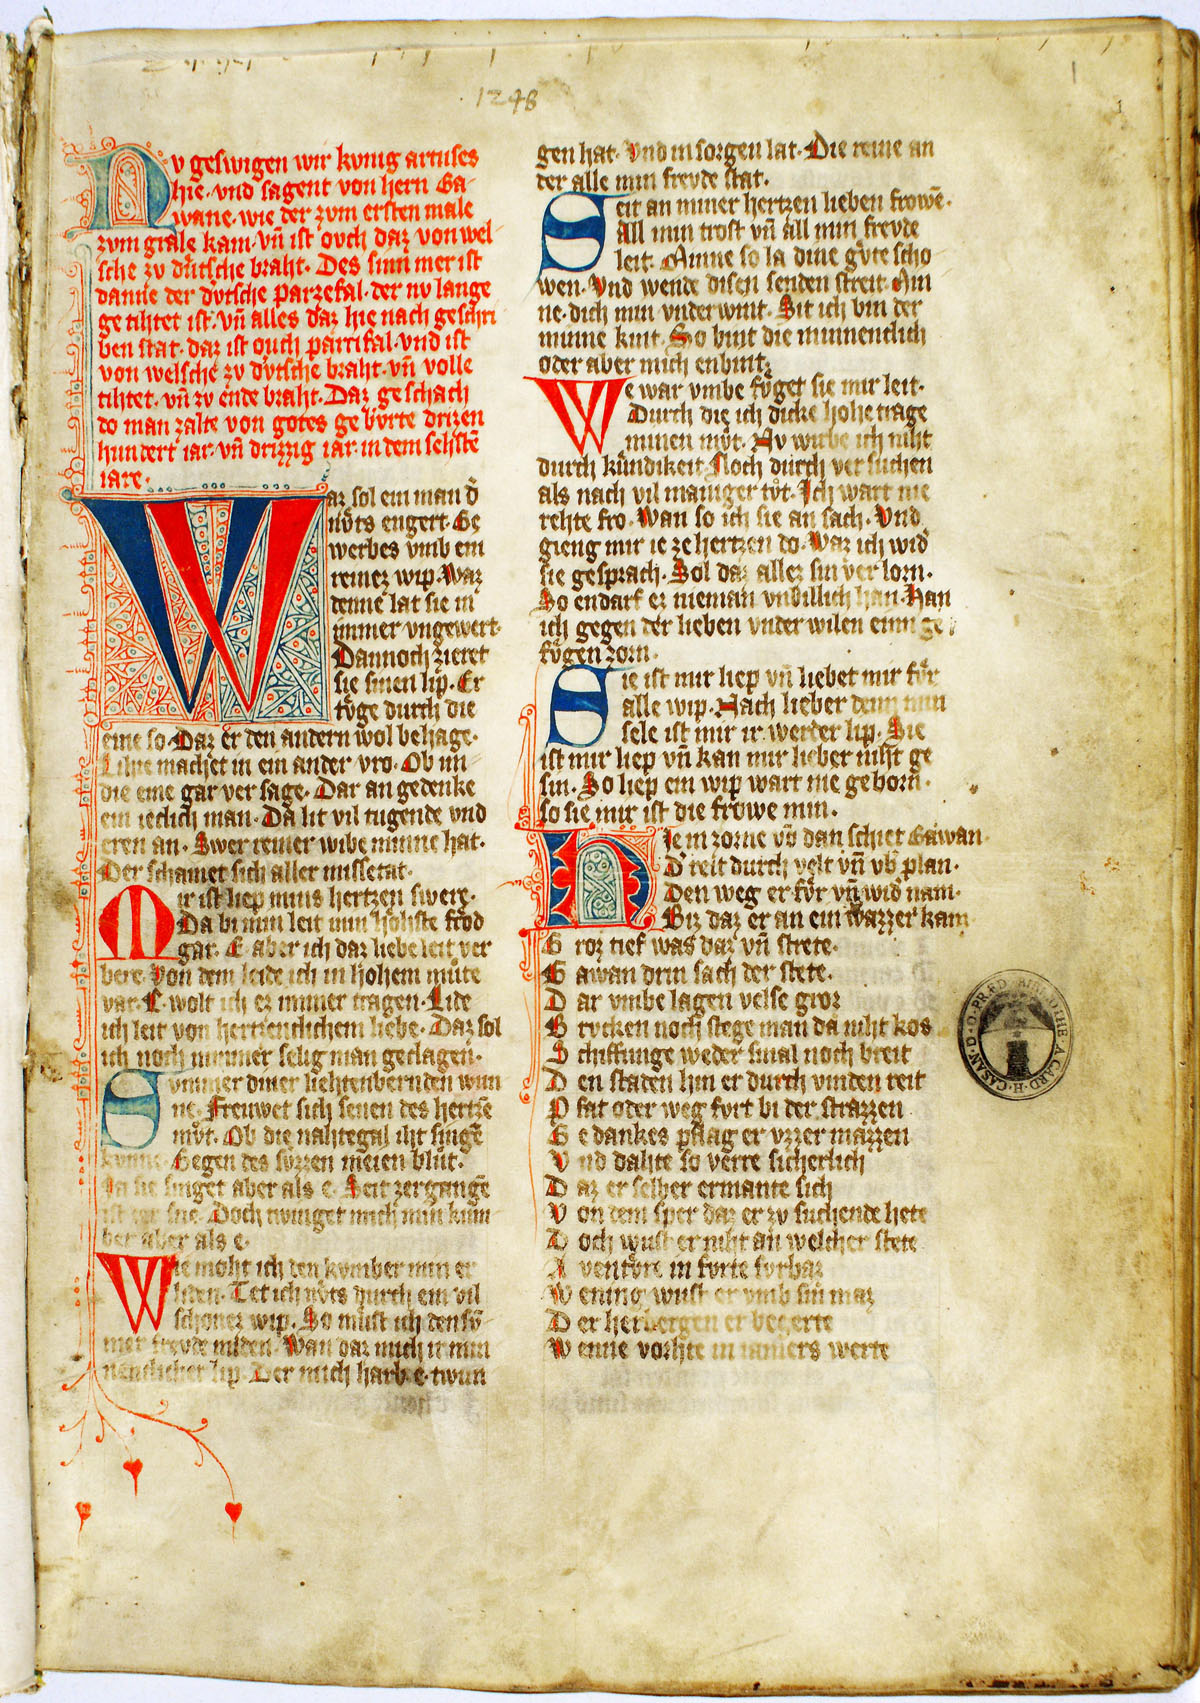 1248
1
1
NV geswigen wir kvnig artuses
hie· vnd sagent von hern Ga-
wane· wie der zvm ersten male
zvm grale kam· vn̄ ist ovch daz von wel-
sche zv dv̍tsche braht· Des sinn mer ist
danne der dv̍tsche parzefal· der nv lange
getihtet ist· vn̄ alles daz hie nach geschri
ben stat· daz ist ouch partifal· vnd ist
von welsche zv dv̍tsche braht· vn̄ volle
tihtet· vn̄ zv ende braht· Daz geschach
do man zalte von gotes gebv̍rte drizen
hundert iar· vn̄ drizzig iar· in dem sehstē
iare·
WAz sol ein man d̄
nv̊ts engert· Ge
werbes vmb ein
reinez wip· Waz
denne lat sie in
immer vngewert·
Dannoch zieret
sie sinen lip· Er
tv̊ge durch die
eine so· Daz er den andern wol behage·
Lihte machet in ein ander vro· Ob im
die eine gar versage· Dar an gedenke
ein ieclich man· Da lit vil tugende vnd
eren an· Swer reiner wibe minne hat·
Der schamet sich aller missetat·
MIr ist liep mins hertzen swere·
Da bi min leit min hohste frǒd
gar· E· aber ich daz liebe leit ver
bere· Von dem leide ich in hohem mv̊te
var· E· wolt ich ez immer tragen· Lide
ich leit von hertzenclichem liebe· Daz sol
ich noch nimmer selig man geclagen·
SVmmer diner liehtenbernden wun
ne· Freuwet sich senen des hertzē
mv̊t· Ob die nahtegal iht singē
kvnne· Gegen des sv̊zzen meien blv̊t·
Ia sie singet aber als e· Seit zergangē
ist der sne· Doch twinget mich min kum
ber aber als e·
WIe moht ich den kvmber min er
liden· Tet ich nv̊ts durch ein vil
schonez wip· So mv̊st ich den sv̄-
mer frevde miden· Wan daz mich ir min
nenclicher lip· Der mich hart e· twun
gen hat· Vnd in sorgen lat· Die reine an
der alle min frevde stat·
SEit an miner hertzen lieben frowē·
All min trost vn̄ all min frevde
leit· Minne so la dine gv̊te scho
wen· Vnd wende disen senden streit· Min
ne· dich min vnderwint· Sit ich bin der
minne kint· So bint die minnenclich
oder aber mich enbint·
WE war vmbe fv̊get sie mir leit·
Durch die ich dicke hohe trage
minen mv̊t· Nv wirbe ich niht
durch kv̍ndikeit· Noch durch versuchen
als nach vil maniger tv̊t· Ich wart nie
rehte fro· Wan so ich sie an sach· Vnd
gieng mir ie ze hertzen do· Waz ich wid̄
sie gesprach· Sol daz allez sin verlorn·
So endarf ez nieman vnbillich han· Han
ich gegen der lieben vnder wilen einn ge
fv̊gen zorn·
SIe ist mir liep vn̄ liebet mir fv̊r
alle wip· Nach lieber denn min
sele ist mir ir werder lip· Sie
ist mir liep vn̄ kan mir lieber niht ge
sin· So liep ein wip wart nie geborn·
so sie mir ist die frowe min·
HIe in zorne vō dan schiet Gawan·
D̄ reit durch velt vn̄ vb̄ plan·
Den weg er fv̊r vn̄ wid̄ nam·
Biz daz er an ein wazzer kam
G roz tief was daz vn̄ strete·
G awan drin sach der stete·
D ar vmbe lagen velse groz
B rvcken noch stege man da niht kos
S chiffunge weder smal noch breit
D en staden hin er durch vinden reit
P fat oder weg fvrt bi der strazzen
G edankes pflag er vzzer mazzen
V nd dahte so verre sicherlich
D az er selber ermante sich
V on dem sper daz er zv suchende hete
D och wust er niht an welcher stete
A ventv̍re in fvrte fvrbaz
W ening wust er vmb sin maz
D er herbergen er begerte
W enne vorhte in iamers werte